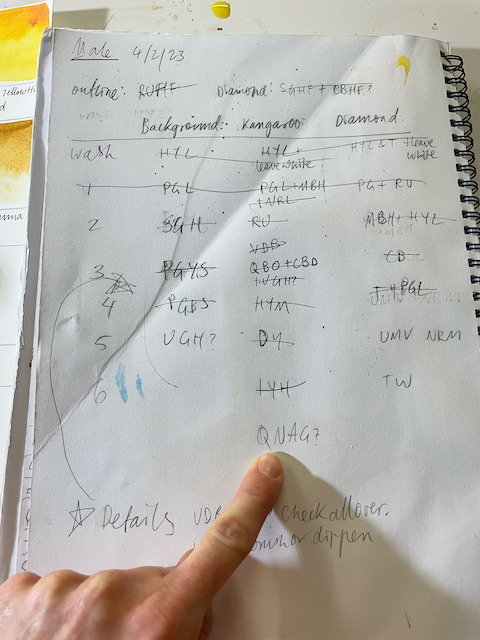 Male 4/2/23
outline: RUPIF Diamond: SGHF + CBHF?
Background: Kangaroo: Diamond
wash HYL HYL + leave white HYL S T + leave white
1 PGL PGL + MBH + NRL PG + RU
2 SGH RU MBH + HYL
VDB
3 PGYS QBO + CBD + UGH? CB
4 PGBS HYM + PGL
5 UGH? DY UMV NRM
6 IYH TW
QNAG?
Details check allover.
dippen